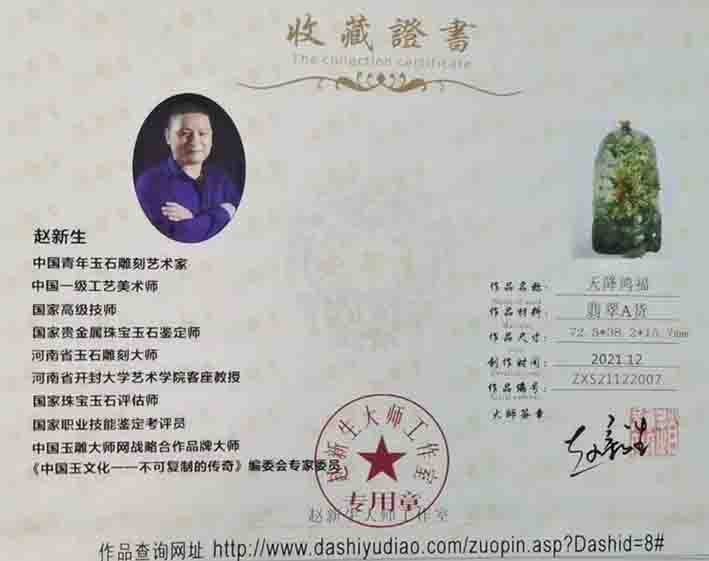 收藏證書
The connection certificate
赵新生
中国青年玉石雕刻艺术家
中国一级工艺美术师
国家高级技师
国家贵金属珠宝玉石鉴定师
河南省玉石雕刻大师
河南省开封大学艺术学院客座教授
国家珠宝玉石评估师
国家职业技能鉴定考评员
中国玉雕大师网战略合作品牌大师
《中国玉文化——不可复制的传奇》编委会专家委员
作品名称: 天降鸿福
作品材料: 翡翠A货
作品尺寸: 72.5*38.2*15.7mm
创作时间: 2021.12
作品编号: ZXS21122007
大师签章
赵新生
赵新生大师工作室
专用章
赵新生大师工作室
作品查询网址 http://www.dashiyudiao.com/zuopin.asp?Dashid=8#